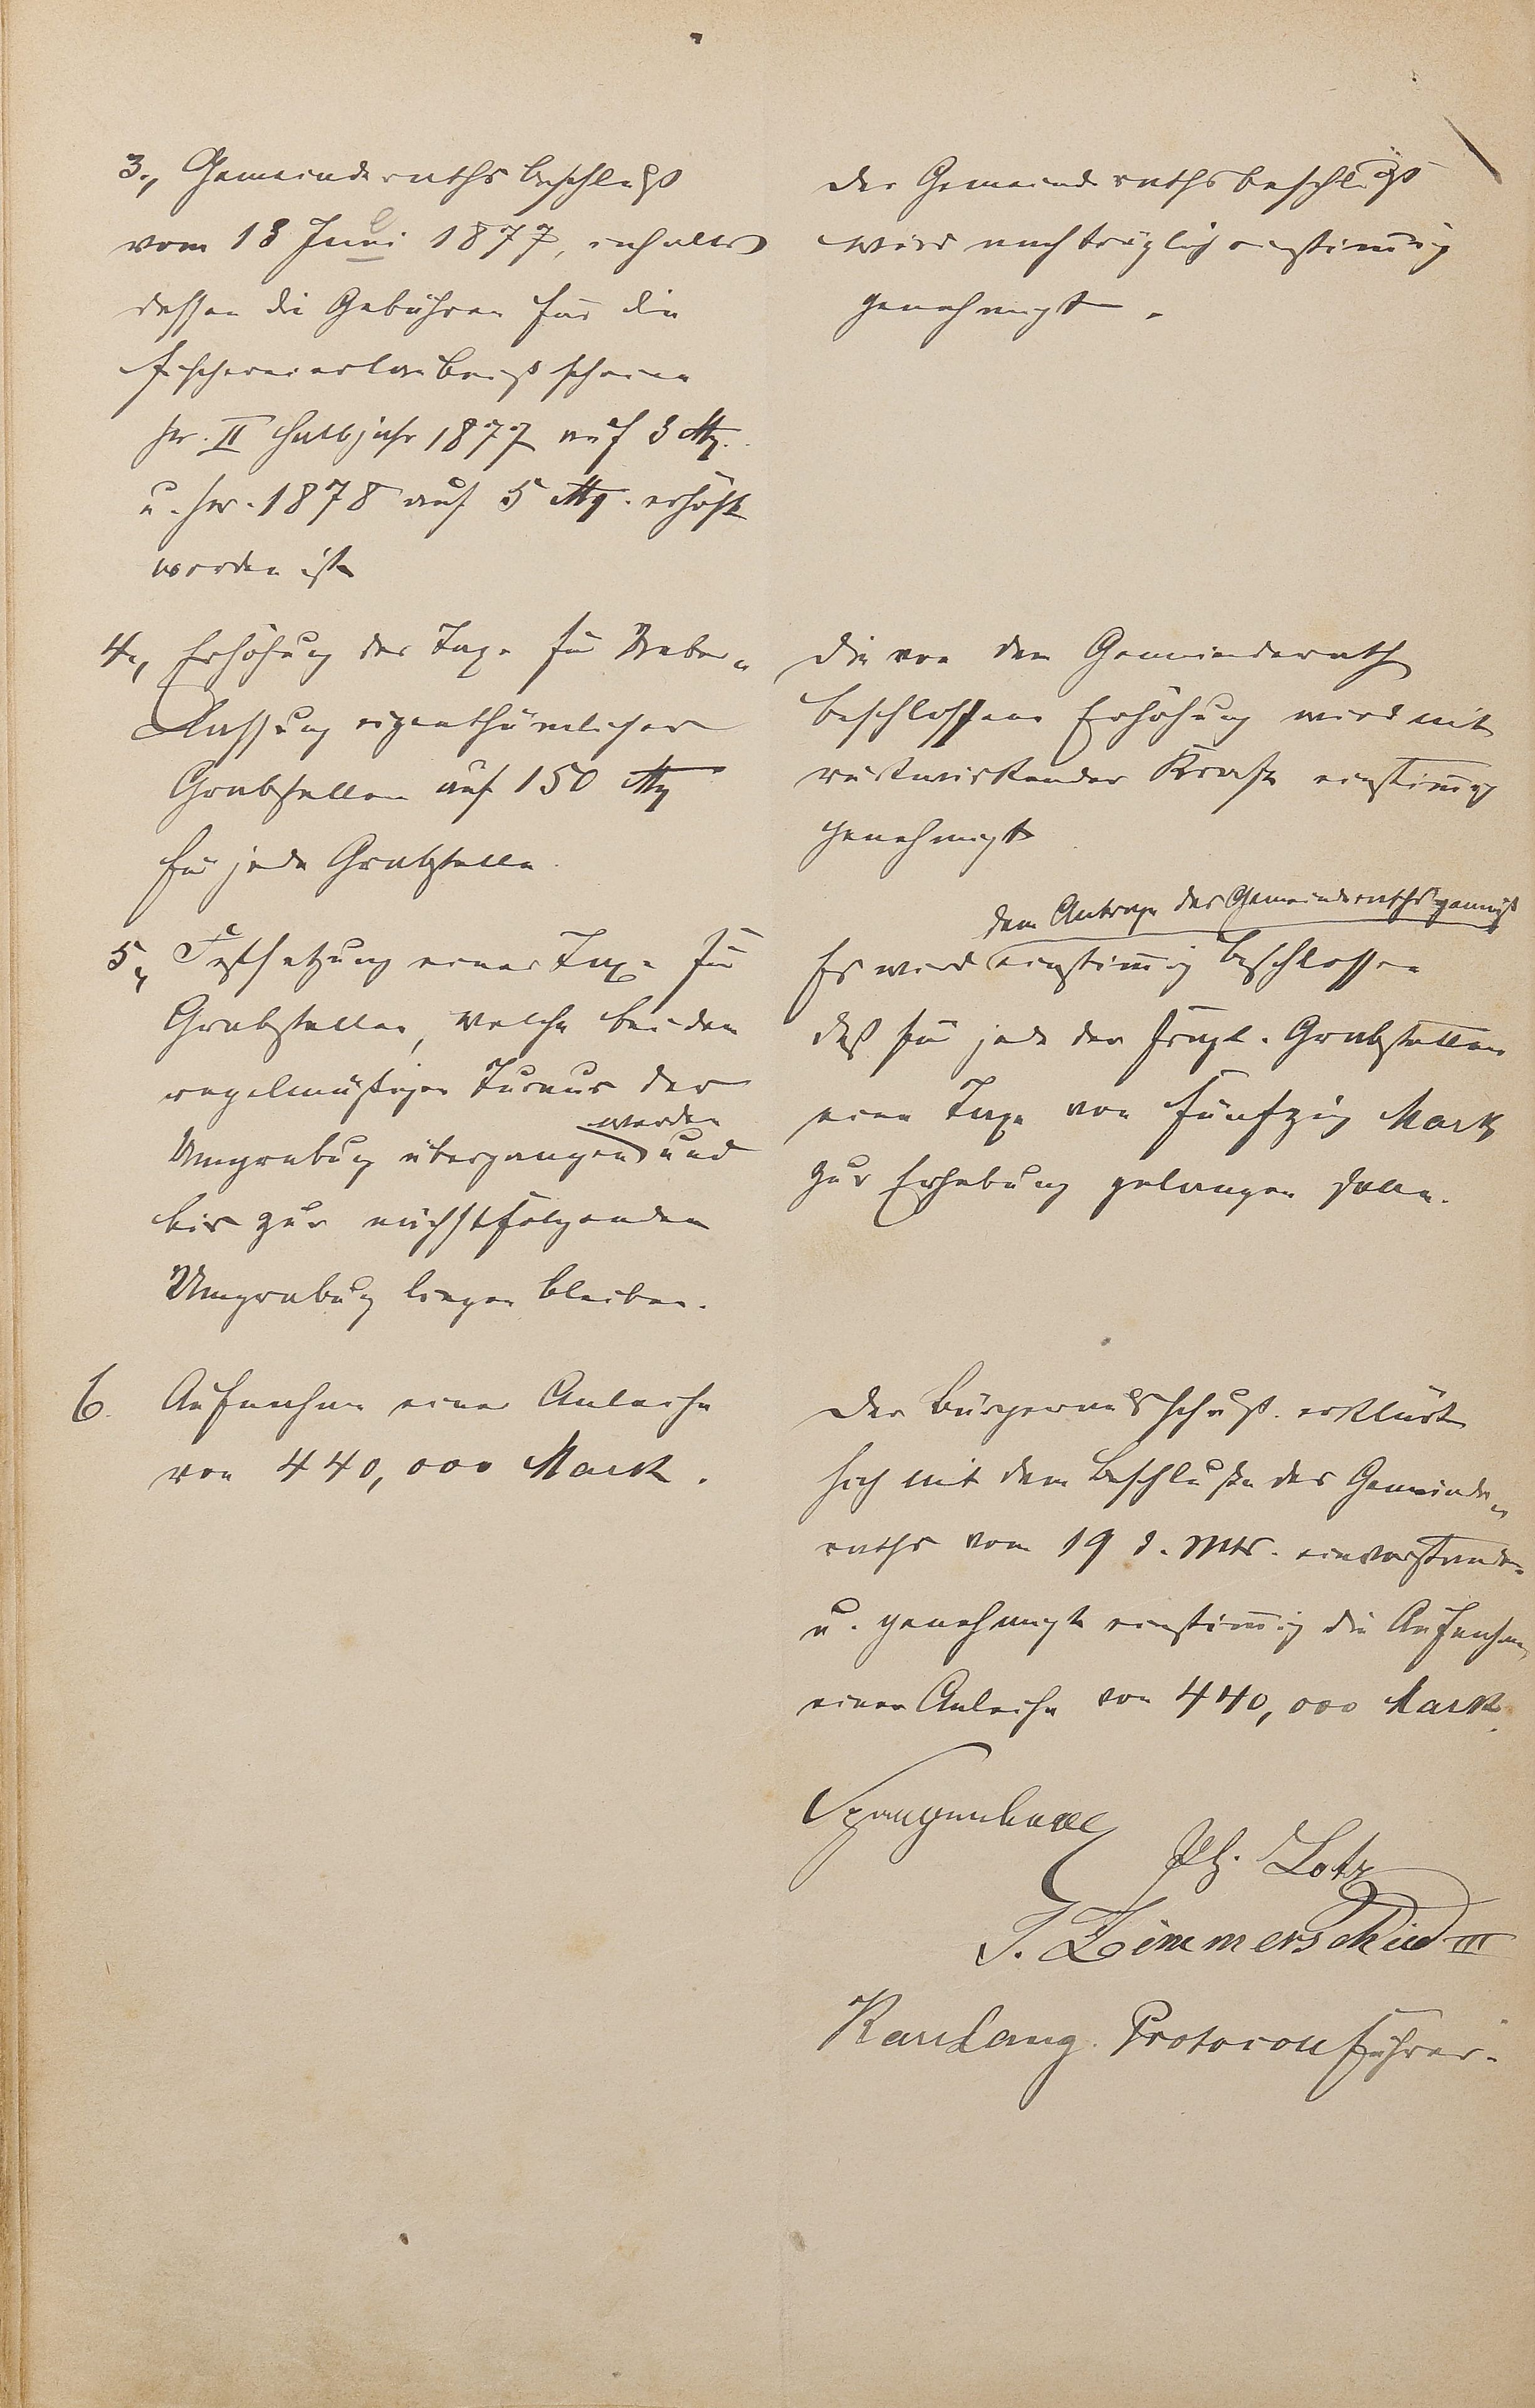 3., Gemeinderathsbeschluß
vom 13 Juni 1877, inhalts
dessen die Gebühren für die
Fischereierlaubnißscheine
pr. II Halbjahr 1877 auf 3 M.
u. pr. 1878 auf 5 M. erhöht
worden ist
Der Gemeinderathsbeschluß
wird nachträglich einstimmig
genehmigt.
4., Erhöhung der Taxe für Ueber-
lassung eigenthümlicher
Grabstellen auf 150 M
für jede Grabstelle.
Die von dem Gemeinderath
beschlossene Erhöhung wird mit
rückwirkender Kraft einstimmig
genehmigt
5., Festsetzung einer Taxe für
Grabstellen, welche bei dem
regelmäßigen Turnus der
werden
Umgrabung übergangen und
bis zur nächstfolgenden
Umgrabung liegen bleiben.
dem Antrage des Gemeinderaths gemäß
Es wird einstimmig beschlossen
daß für jede der fragl. Grabstellen
eine Taxe von fünfzig Mark
zur Erhebung gelangen solle.
6. Aufnahme einer Anleihe
von 440,000 Mark.
Der Bürgerausschuß erklärt
sich mit dem Beschluße des Gemeinde-
raths vom 19 d. Mts. einverstanden
u. genehmigt einstimmig die Aufnahme
einer Anleihe von 440,000 Mark.
Spangenberg
Ph. Lotz
J. Zimmerschied III
Karl Lang Protocollführer.